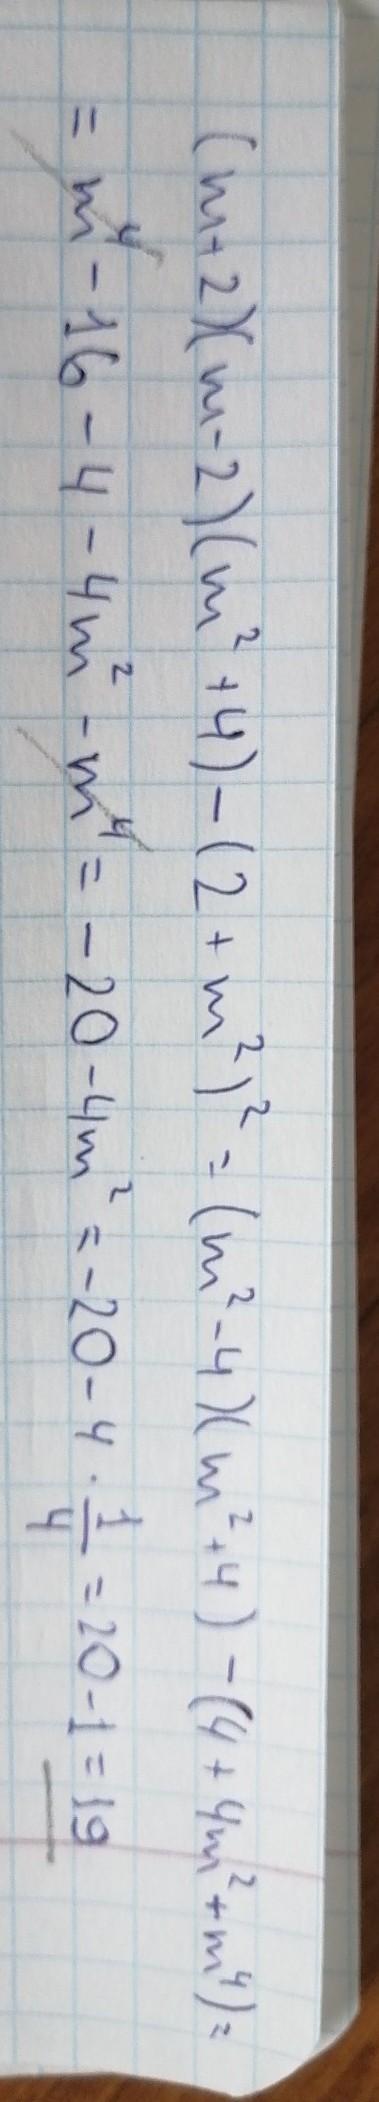 (m+2)(m-2)(m²+4)-(2+m²)²=(m²-4)(m²+4)-(4+4m²+m⁴)=
=m⁴-16-4-4m²-m⁴=-20-4m²=-20-4·1/4=20-1=19